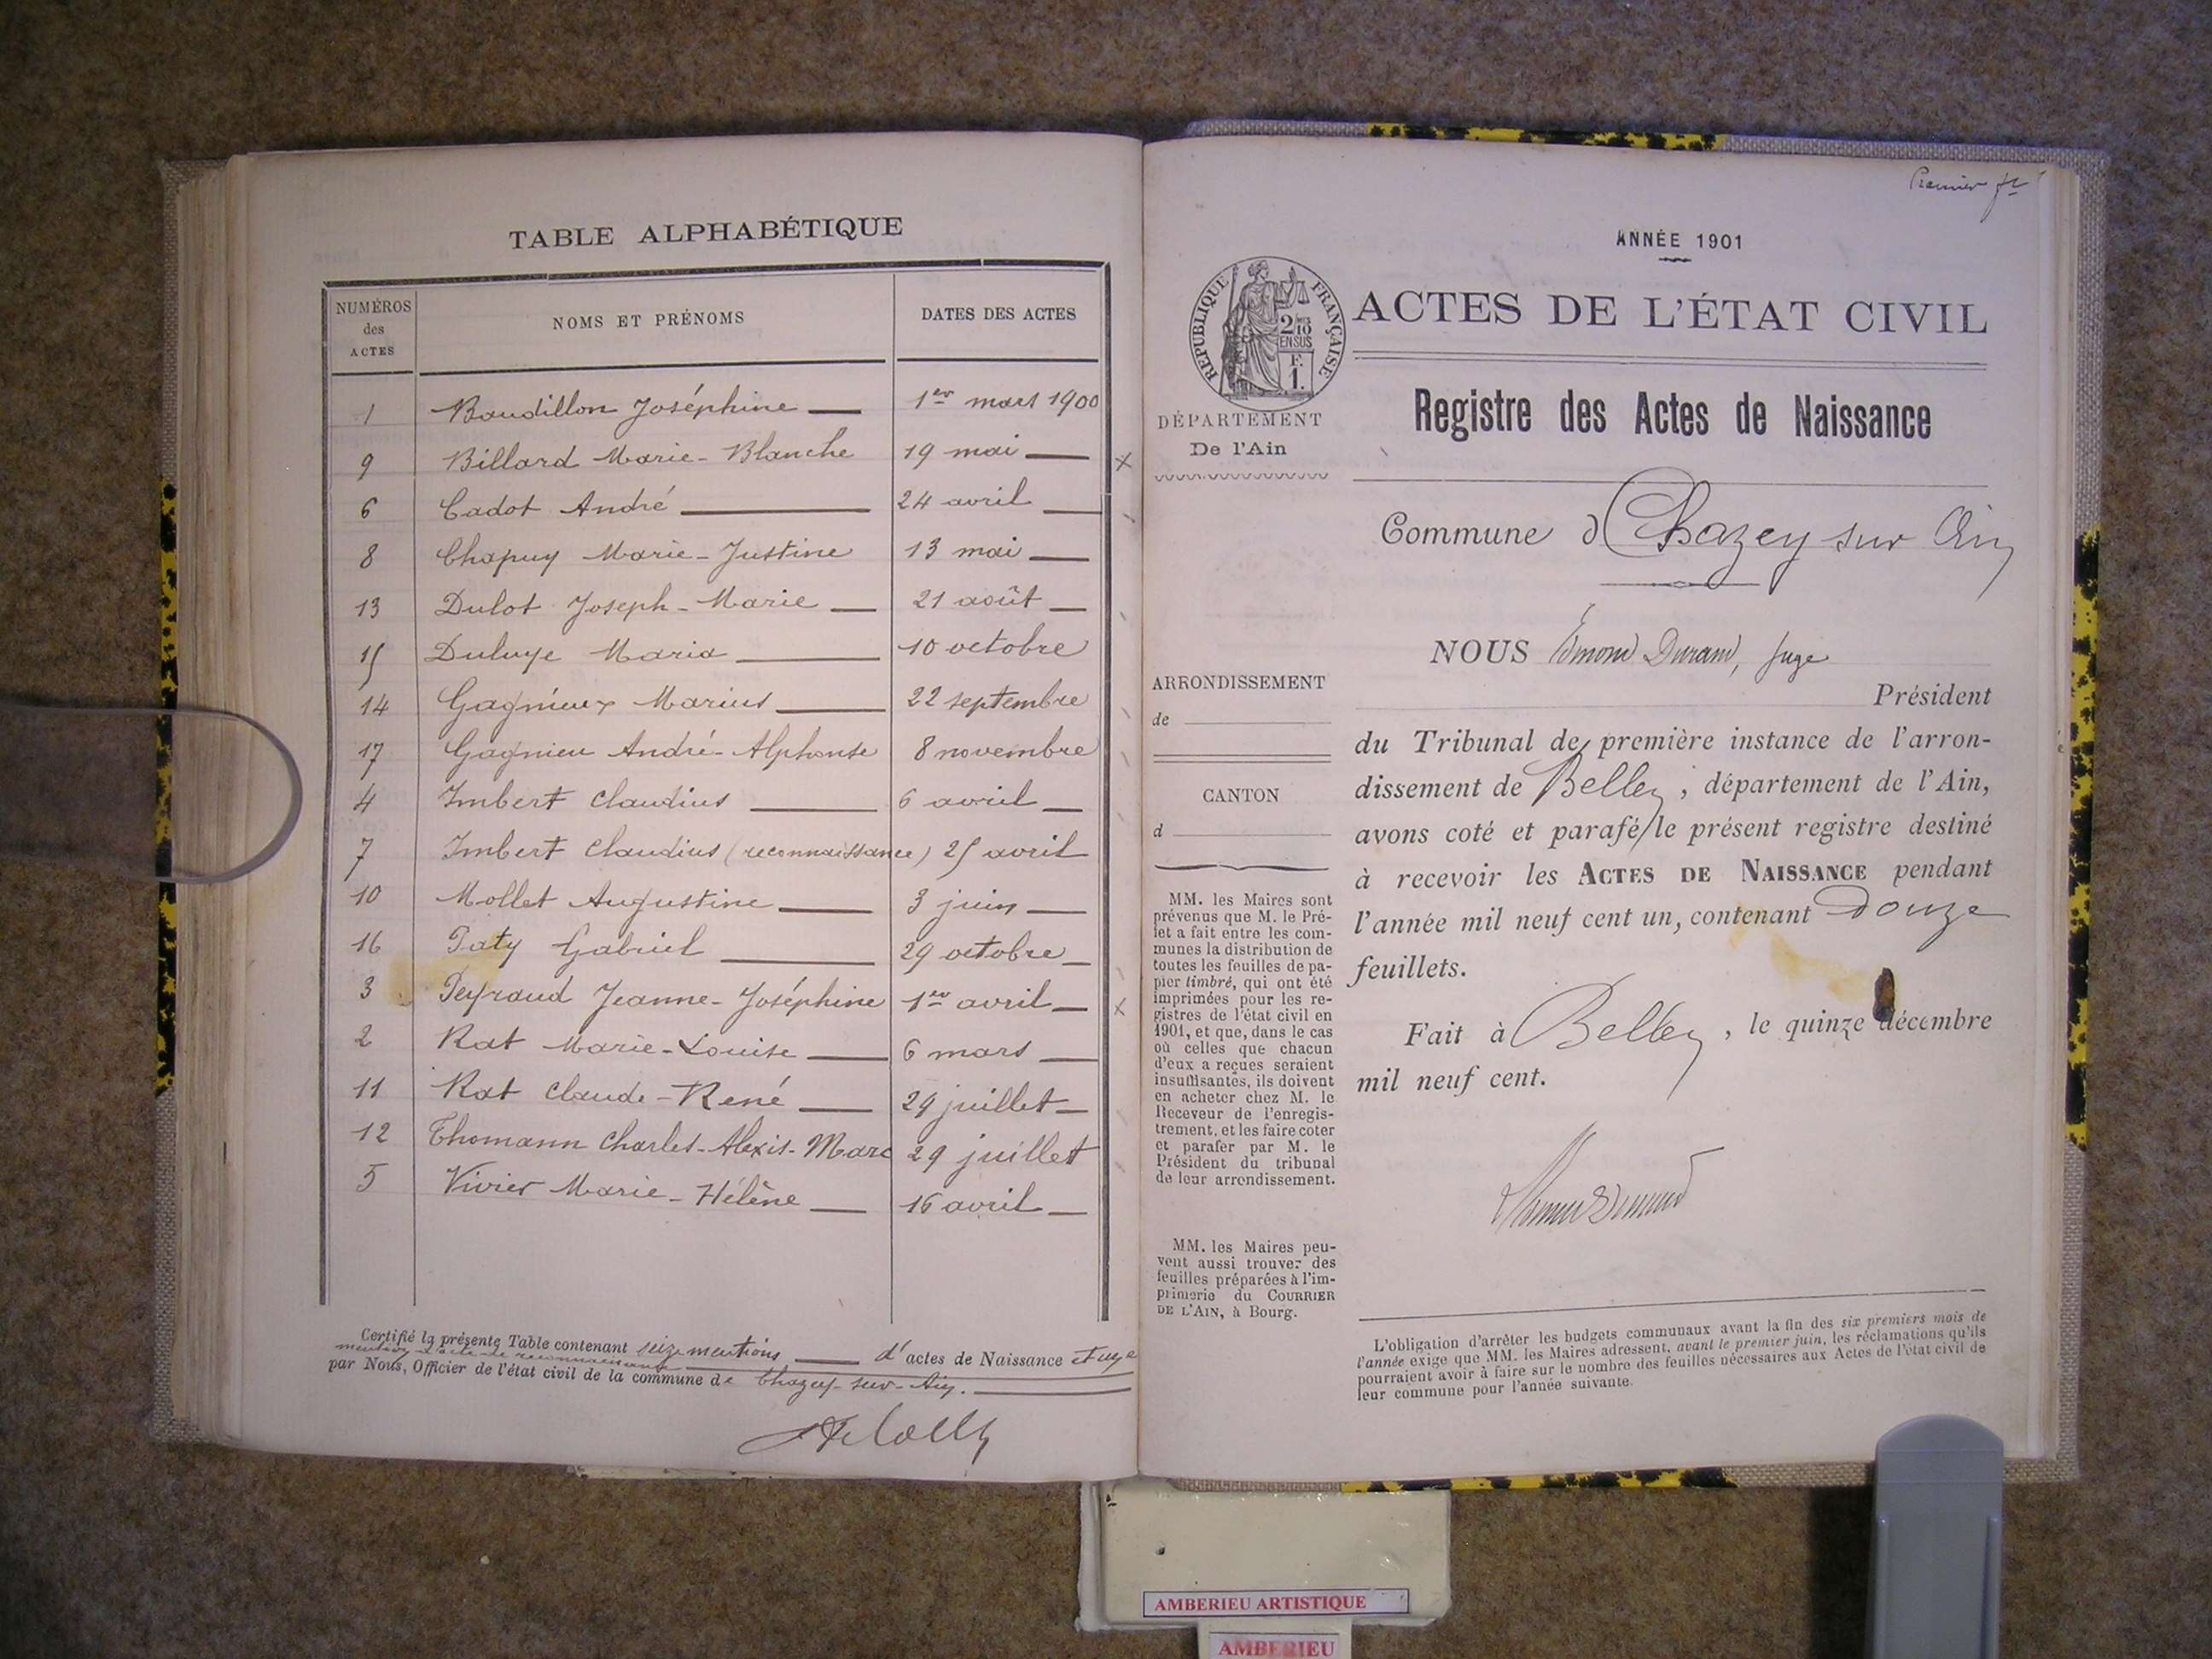 TABLE ALPHABÉTIQUE
NUMÉROS des ACTES
NOMS ET PRÉNOMS
DATES DES ACTES
1 Baudillon Joséphine 1er mars 1900
9 Billard Marie-Blanche 19 mai
6 Cadot André 24 avril
8 Chapuy Marie-Justine 13 mai
13 Dulot Joseph-Marie 21 août
15 Duluye Maria 10 octobre
14 Gagnieux Marius 22 septembre
17 Gagnieu André-Alphonse 8 novembre
4 Imbert Claudius 6 avril
7 Imbert Claudius (reconnaissance) 25 avril
10 Mollet Augustine 3 juin
16 Paty Gabriel 29 octobre
3 Peyraud Jeanne-Joséphine 1er avril
2 Rat Marie-Louise 6 mars
11 Rat Claude-René 29 juillet
12 Thomann Charles-Alexis-Marc 29 juillet
5 Vivier Marie-Hélène 16 avril
Certifié la présente Table contenant seize mentions d'actes de Naissance et une
mention d'acte de reconnaissance
par Nous, Officier de l'état civil de la commune de Chazey-sur-Ain.
Premier
ANNÉE 1901
RÉPUBLIQUE FRANÇAISE
2/10 EN SUS
F. 1.
ACTES DE L'ÉTAT CIVIL
DÉPARTEMENT
De l'Ain
Registre des Actes de Naissance
Commune d Chazey sur Ain
ARRONDISSEMENT
de
CANTON
d
MM. les Maires sont
prévenus que M. le Pré-
fet a fait entre les com-
munes la distribution de
toutes les feuilles de pa-
pier timbré, qui ont été
imprimées pour les re-
gistres de l'état civil en
1901, et que, dans le cas
où celles que chacun
d'eux a reçues seraient
insuffisantes, ils doivent
en acheter chez M. le
Receveur de l'enregis-
trement, et les faire coter
et parafer par M. le
Président du tribunal
de leur arrondissement.
MM. les Maires peu-
vent aussi trouver des
feuilles préparées à l'im-
primerie du COURRIER
DE L'AIN, à Bourg.
NOUS Edmond Durand, Juge
Président
du Tribunal de première instance de l'arron-
dissement de Belley, département de l'Ain,
avons coté et parafé le présent registre destiné
à recevoir les ACTES DE NAISSANCE pendant
l'année mil neuf cent un, contenant Douze
feuillets.
Fait à Belley, le quinze décembre
mil neuf cent.
L'obligation d'arrêter les budgets communaux avant la fin des six premiers mois de
l'année exige que MM. les Maires adressent, avant le premier juin, les réclamations qu'ils
pourraient avoir à faire sur le nombre des feuilles nécessaires aux Actes de l'état civil de
leur commune pour l'année suivante.
AMBERIEU ARTISTIQUE
AMBERIEU